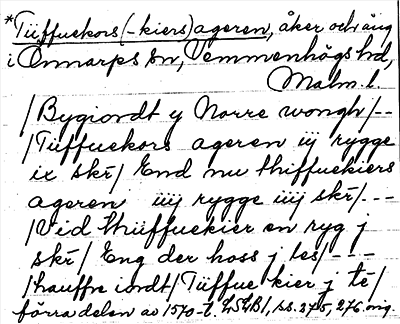 *Tüffuekors(-kiers)ageren, åker och äng
i Önnarps sn, Vemmenhögs hd,
Malm. l.
/Bygiordt y Norre wongh/--
/Tüffuekors ageren iij rygge
ix skr/ End nu thiffuekiers
ageren iiij rygge iiij skr/---
/Vid thiüffuekier en ryg j
skr/ Eng der hoss j les/---
/hauffre iordt/ Tüffue kier j te/
förra delen av 1570-t.